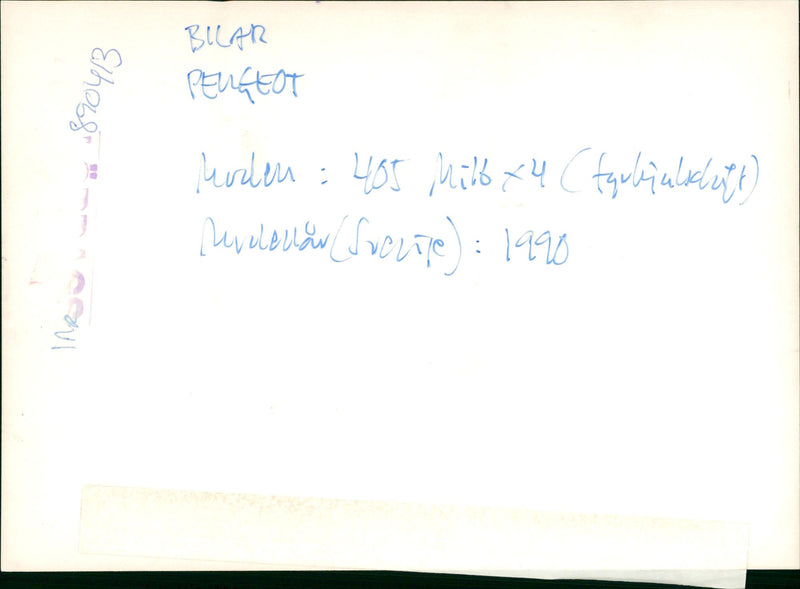 BILAR
PEUGEOT
Modell : 405 Mi16 x4 (fyrhjulsdrift)
Modellår (Sverige) : 1990
890413